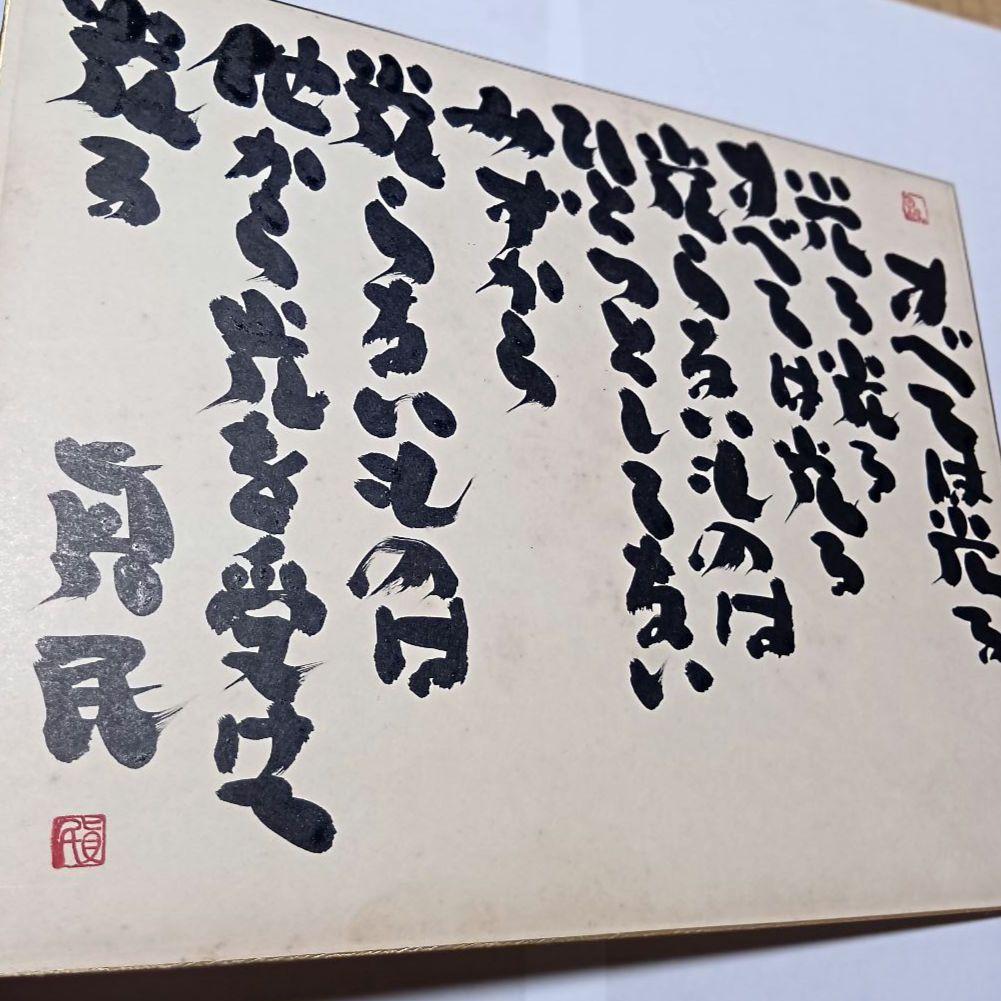 すべては光る
光る光る
すべては光る
光らないものは
ひとつとしてない
みずから
光らないものは
他から光を受けて
光る　真民